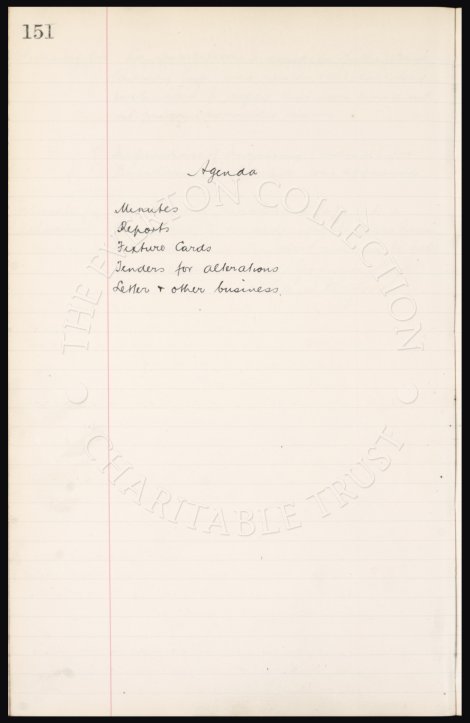 151
Agenda
Minutes
Reports
Fixture Cards
Tenders for alterations
Letter & other business.
THE EVERTON COLLECTION
CHARITABLE TRUST